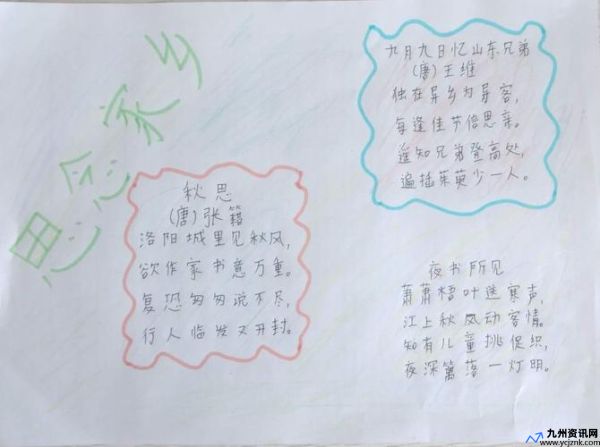 思念家乡
九月九日忆山东兄弟
(唐)王维
独在异乡为异客,
每逢佳节倍思亲。
遥知兄弟登高处,
遍插茱萸少一人。
秋思
(唐)张籍
洛阳城里见秋风,
欲作家书意万重。
复恐匆匆说不尽,
行人临发又开封。
夜书所见
萧萧梧叶送寒声,
江上秋风动客情。
知有儿童挑促织,
夜深篱落一灯明。
九州资讯网
www.ycjznk.com